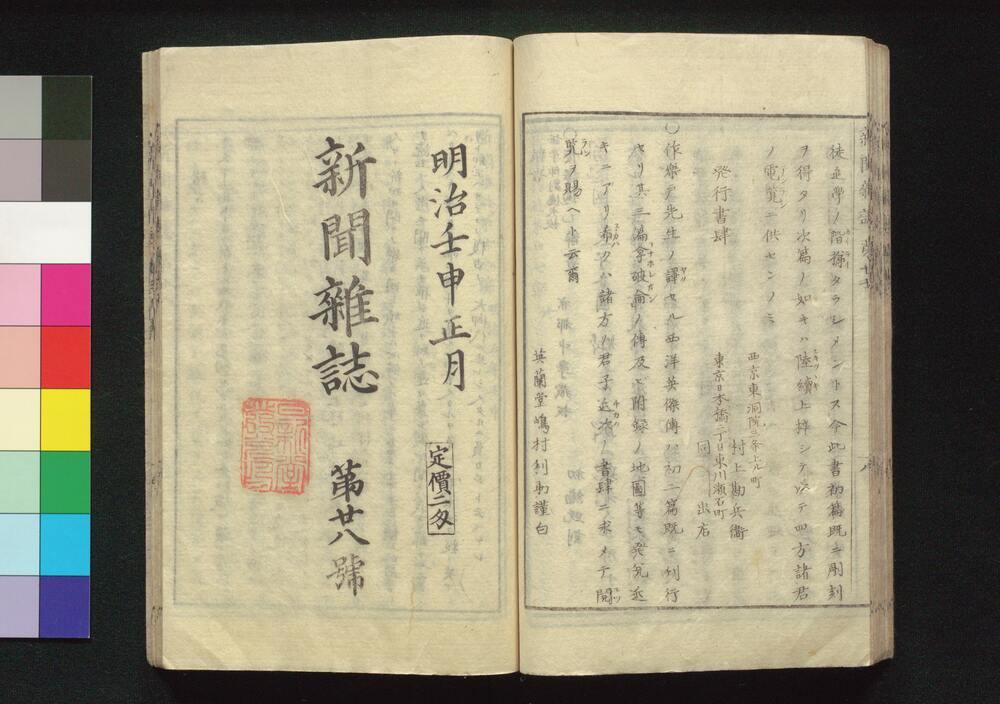 徒並學ノ階梯タラシメントス今此書初篇既ニ刷刻
ヲ得タリ次篇ノ如キハ陸續上梓シテ以テ四方諸君
ノ電覧ニ供センノミ
発行書肆
西京東洞院三条上ル町
村上勘兵衞
東京日本橋二丁目東川瀬石町
同 出店
〇作樂戸先生ノ譯セル西洋英傑傳ハ初二篇既ニ刊行
セリ其三編拿破倫ノ傳及ビ附録ノ地圖等モ発兌近
キニアリ希クハ諸方ノ君子近次ノ書肆ニ求メテ閲
覧ヲ賜ヘト云爾
英蘭堂嶋村利助謹白
明治壬申正月
定價二匁
新聞雜誌
第廿八號